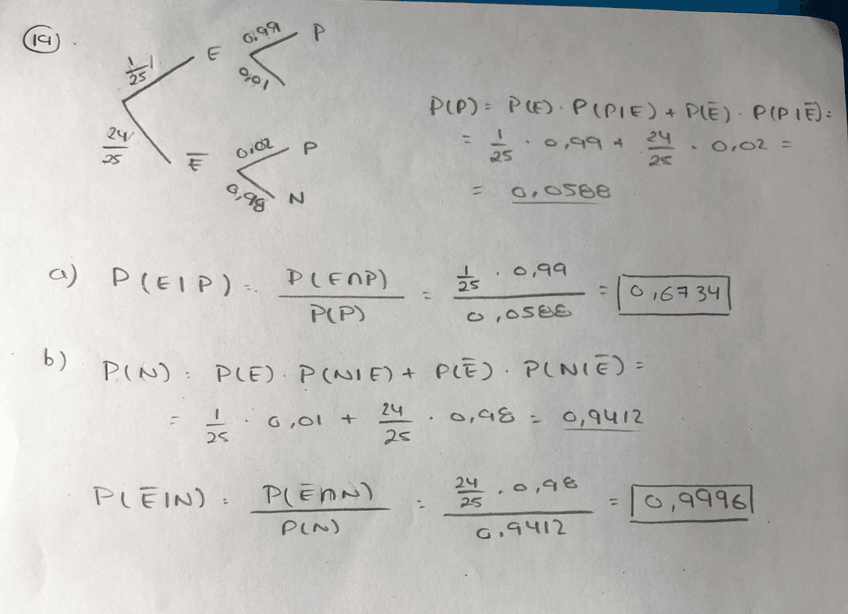 19.
1/25 E 0,99 P
0,01
24/25 Ē 0,02 P
0,98 N
P(P) = P(E) · P(P|E) + P(Ē) · P(P|Ē) =
= 1/25 · 0,99 + 24/25 · 0,02 =
= 0,0588
a) P(E|P) = P(E∩P)/P(P) = (1/25 · 0,99)/0,0588 = 0,6734
b) P(N) = P(E) · P(N|E) + P(Ē) · P(N|Ē) =
= 1/25 · 0,01 + 24/25 · 0,98 = 0,9412
P(Ē|N) = P(Ē∩N)/P(N) = (24/25 · 0,98)/0,9412 = 0,9996